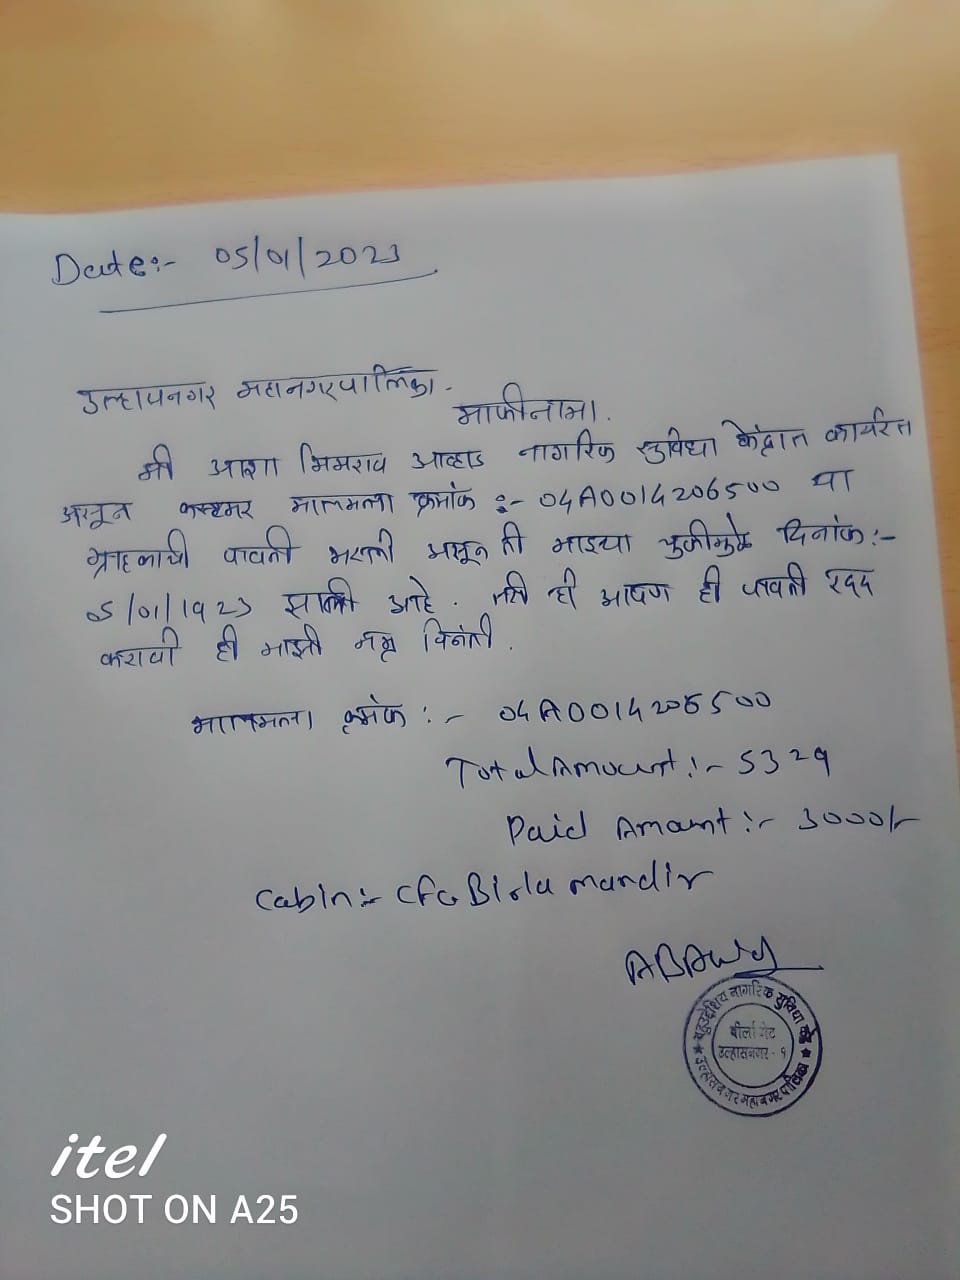 Date:- 05/01/2023
उल्हासनगर महानगरपालिका.
माफीनामा.
मी आशा भिमराव आव्हाड नागरिक सुविधा केंद्रात कार्यरत
असून कस्टमर मालमत्ता क्रमांक :- 04A0014206500 या
ग्राहकाची पावती भरली असून ती माझ्या चुकीमुळे दिनांक:-
05/01/1923 झाली आहे. तरी ही आपण ही पावती रद्द
करावी ही माझी नम्र विनंती.
मालमत्ता क्रमांक :- 04A0014206500
Total Amount :- 5329
Paid Amount :- 3000/-
Cabin:- CFC Birla mandir
ABAwhad
बहुउद्देशिय नागरिक सुविधा केंद्र
बीर्ला गेट
उल्हासनगर - १
उल्हासनगर महानगर पालिका
itel
SHOT ON A25